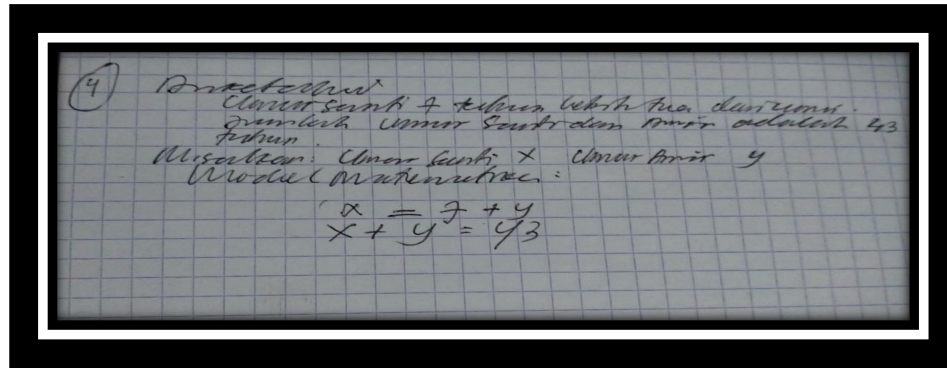 4 Diketahui
Umur Santi 7 tahun lebih tua dari umur
Jumlah umur Santi dan Amir adalah 43
tahun.
Misalkan: Umur Santi x Umur Amir y
Model Matematika:
x = 7 + y
x + y = 43